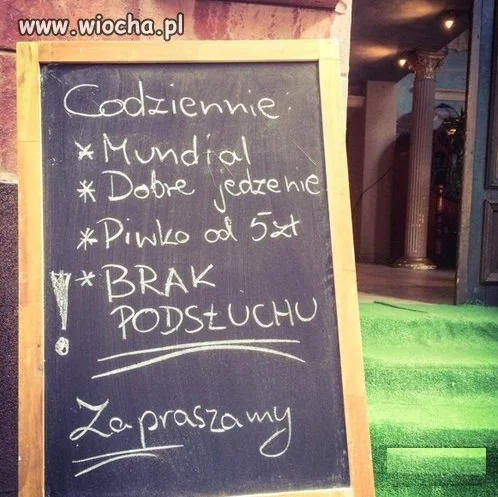 www.wiocha.pl
Codziennie:
* Mundial
* Dobre jedzenie
* Piwko od 5zł
! * BRAK
PODSŁUCHU
Zapraszamy